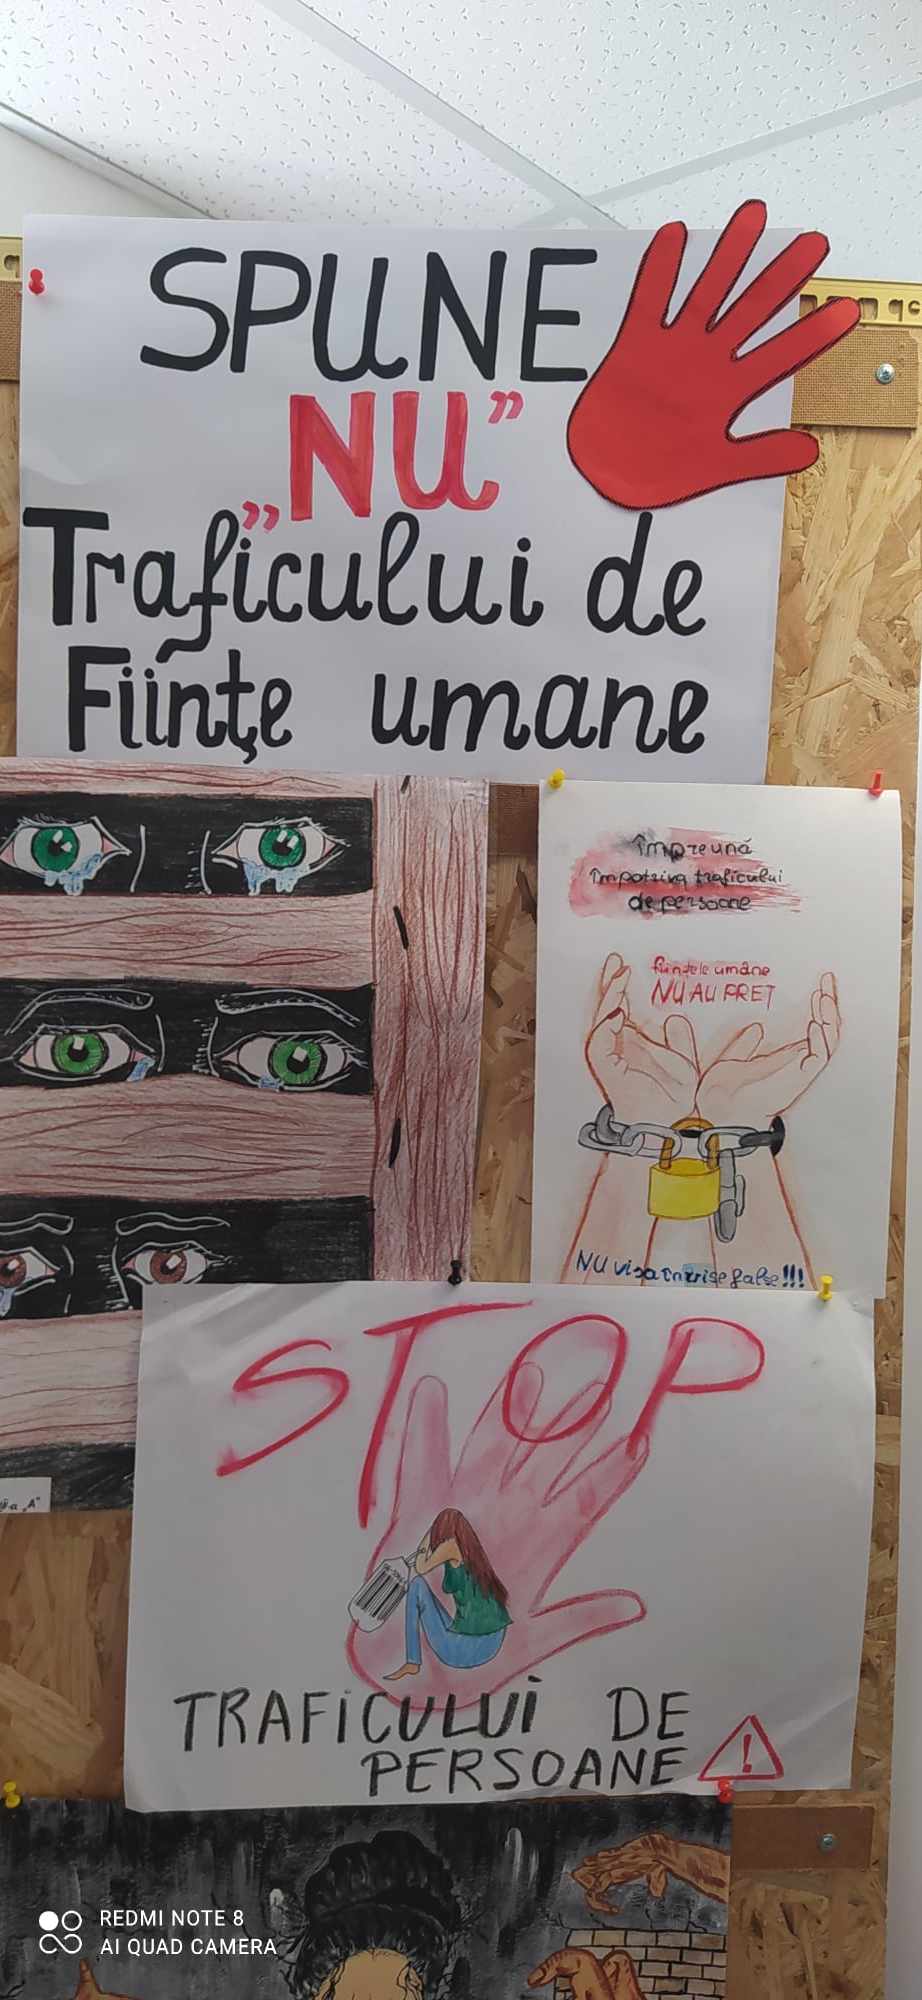 SPUNE
„NU”
Traficului de
Ființe umane
împreună
împotriva traficului
de persoane
ființele umane
NU AU PREȚ
NU visa în vise false!!!
STOP
TRAFICULUI DE
PERSOANE
!
"A"
REDMI NOTE 8
AI QUAD CAMERA